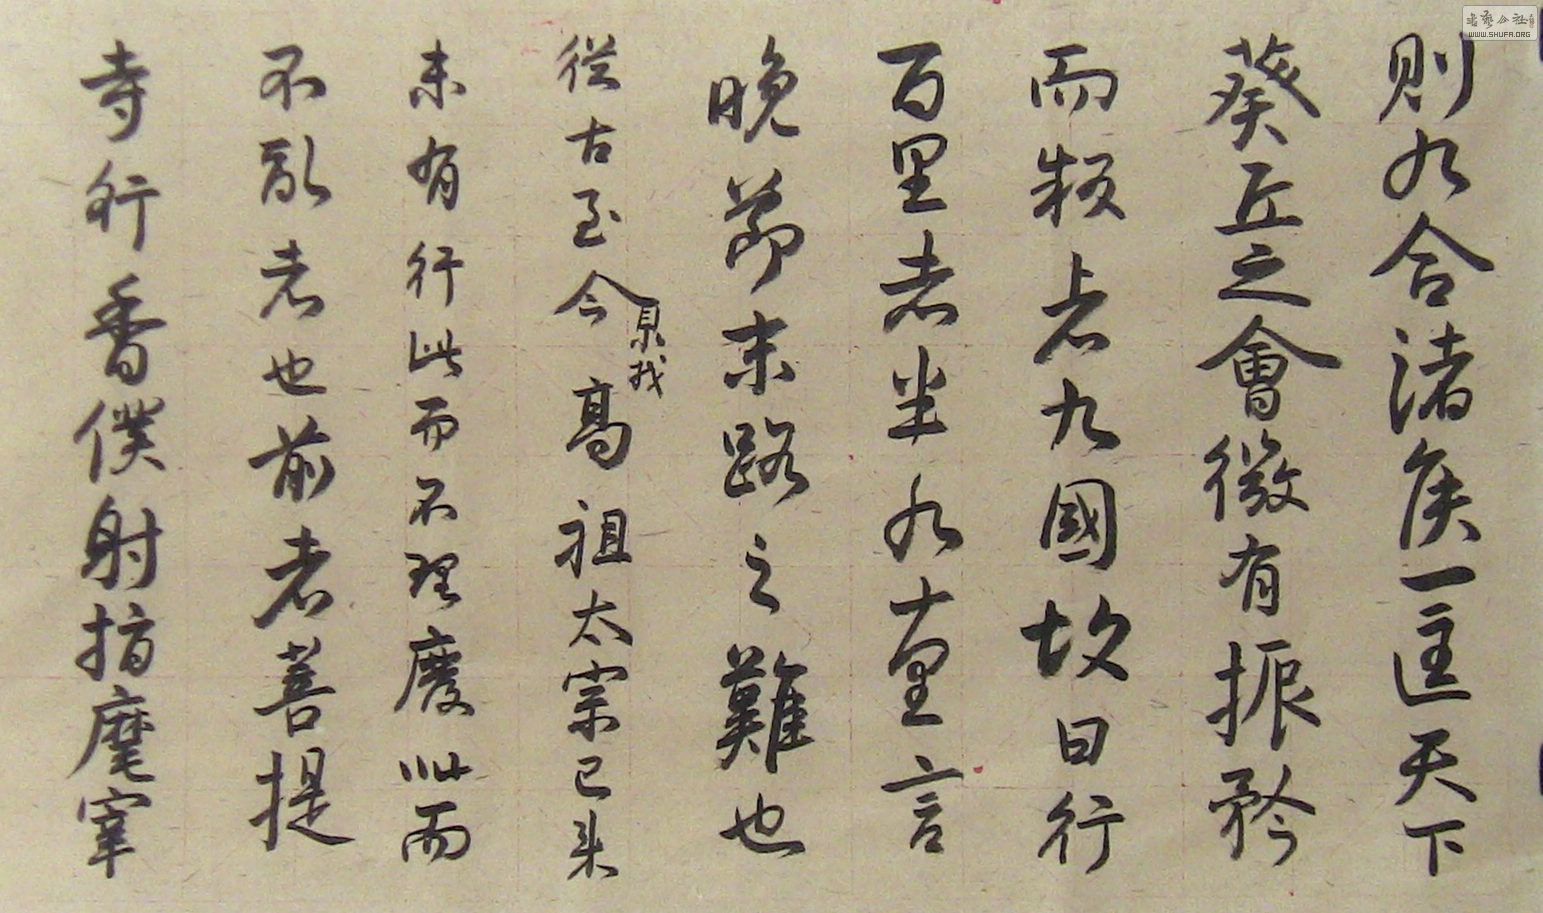 則九合諸侯一匡天下
葵丘之會微有振矜
而叛者九國故曰行
百里者半九十里言
晚節末路之難也
從古至今臮我高祖太宗已来
未有行此而不理廢此而
不亂者也前者菩提
寺行香僕射指麾宰
書藝公社
WWW.SHUFA.ORG